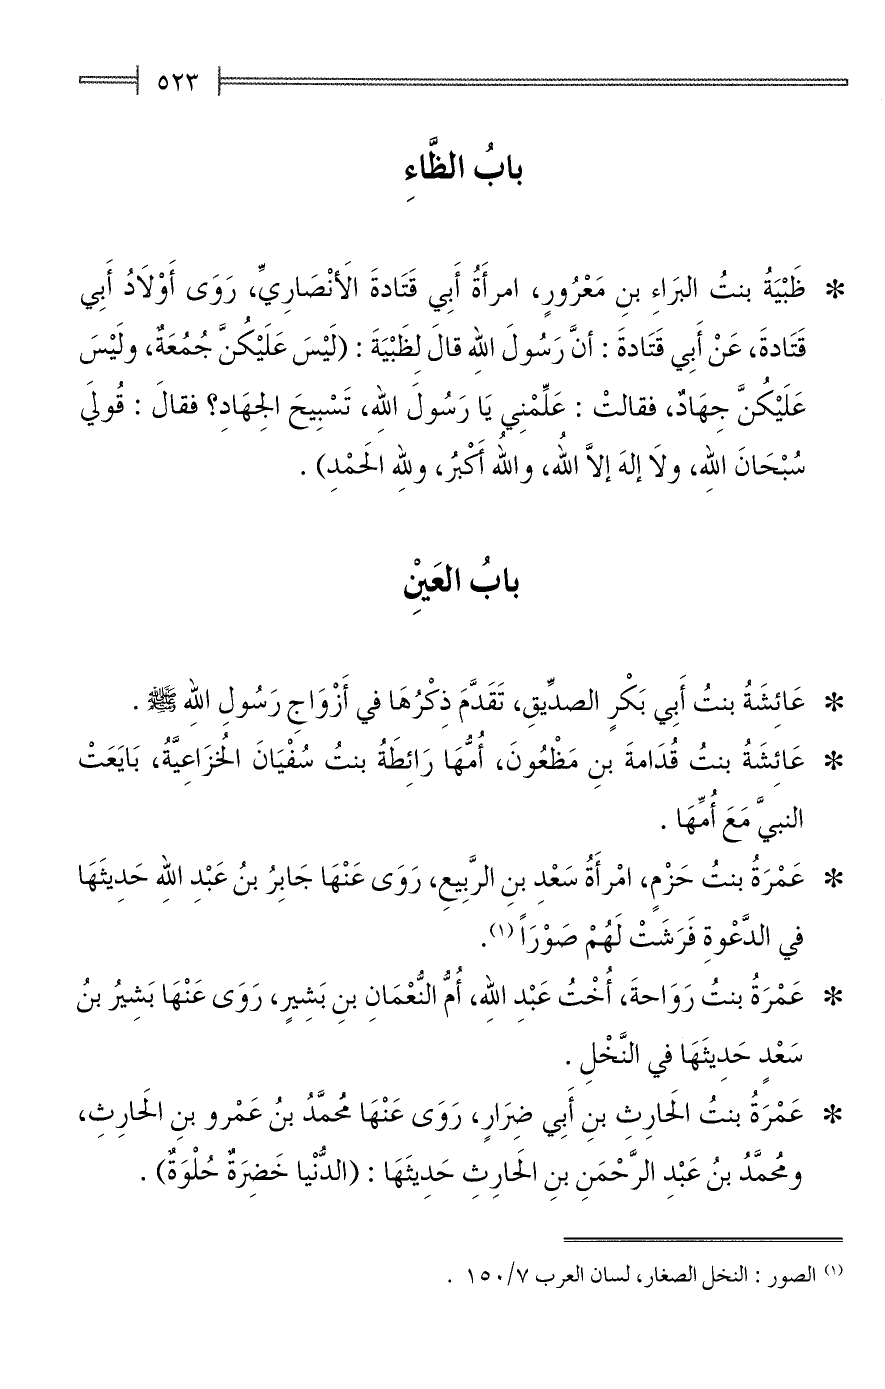 ٥٢٣
بابُ الظَّاءِ
* ظَبْيَةُ بنتُ البَراءِ بنِ مَعْرُورٍ، امرأَةُ أَبي قَتَادةَ الأَنْصَارِيِّ، رَوَى أَوْلَادُ أَبي
قَتَادةَ، عَنْ أَبي قَتَادةَ : أنَّ رَسُولَ اللهِ قالَ لِظَبْيَةَ : (لَيْسَ عَلَيْكُنَّ جُمُعَةٌ، ولَيْسَ
عَلَيْكُنَّ جِهَادٌ، فقالتْ : عَلِّمْنِي يَا رَسُولَ اللهِ، تَسْبِيحَ الجِهَادِ؟ فقالَ : قُولي
سُبْحَانَ اللهِ، ولَا إلهَ إلاَّ اللهُ، واللهُ أَكْبَرُ، وللهِ الحَمْدِ) .
بابُ العَيْنِ
* عَائِشَةُ بنتُ أَبي بَكْرٍ الصدِّيقِ، تَقَدَّمَ ذِكْرُهَا في أَزْوَاجِ رَسُولِ اللهِ ﷺ .
* عَائِشَةُ بنتُ قُدَامةَ بنِ مَظْعُونَ، أُمُّهَا رَائِطَةُ بنتُ سُفْيَانَ الخُزَاعِيَّةُ، بَايَعَتْ
النبيَّ مَعَ أُمِّهَا .
* عَمْرَةُ بنتُ حَزْمٍ، امْرأَةُ سَعْدِ بنِ الرَّبِيعِ، رَوَى عَنْهَا جَابِرُ بنُ عَبْدِ اللهِ حَدِيثَهَا
في الدَّعْوةِ فَرَشَتْ لَهُمْ صَوْرَاً (١).
* عَمْرَةُ بنتُ رَوَاحةَ، أُخْتُ عَبْدِ اللهِ، أُمُّ النُّعْمَانِ بنِ بَشِيرٍ، رَوَى عَنْهَا بَشِيرُ بنُ
سَعْدٍ حَدِيثَهَا في النَّخْلِ .
* عَمْرَةُ بنتُ الحَارِثِ بنِ أَبي ضِرَارٍ، رَوَى عَنْهَا مُحمَّدُ بنُ عَمْرو بنِ الحَارِثِ،
ومُحمَّدُ بنُ عَبْدِ الرَّحْمَنِ بنِ الحَارِثِ حَدِيثَهَا : (الدُّنْيا خَضِرَةٌ حُلْوَةٌ) .
(١) الصور : النخل الصغار، لسان العرب ١٥٠/٧ .